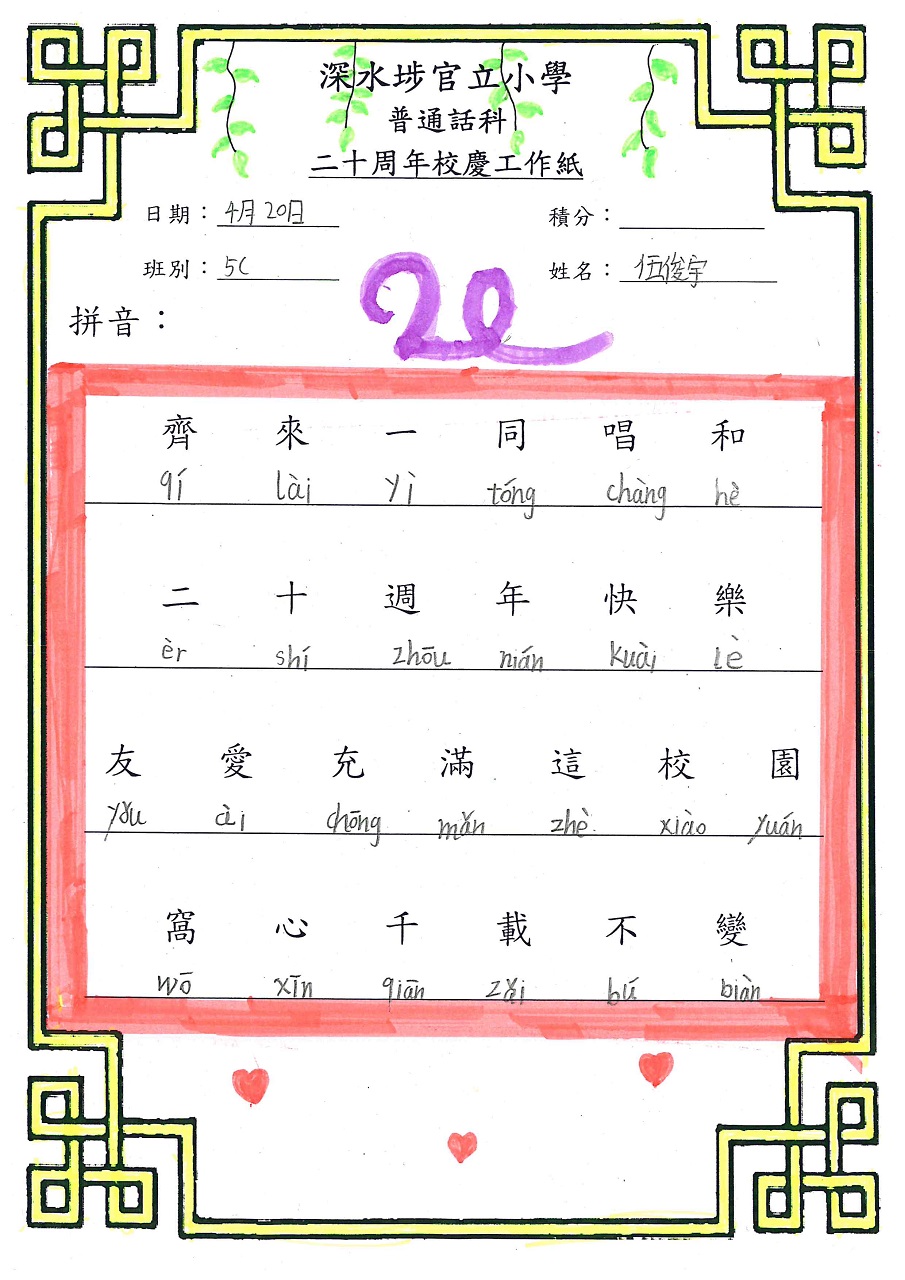 深水埗官立小學
普通話科
二十周年校慶工作紙
日期：4月20日 積分：
班別：5C 姓名：伍俊宇
20
拼音：
齊 來 一 同 唱 和
qí lài yì tóng chàng hè
二 十 週 年 快 樂
èr shí zhōu nián kuài lè
友 愛 充 滿 這 校 園
yǒu ài chōng mǎn zhè xiào yuán
窩 心 千 載 不 變
wō xīn qiān zǎi bú biàn